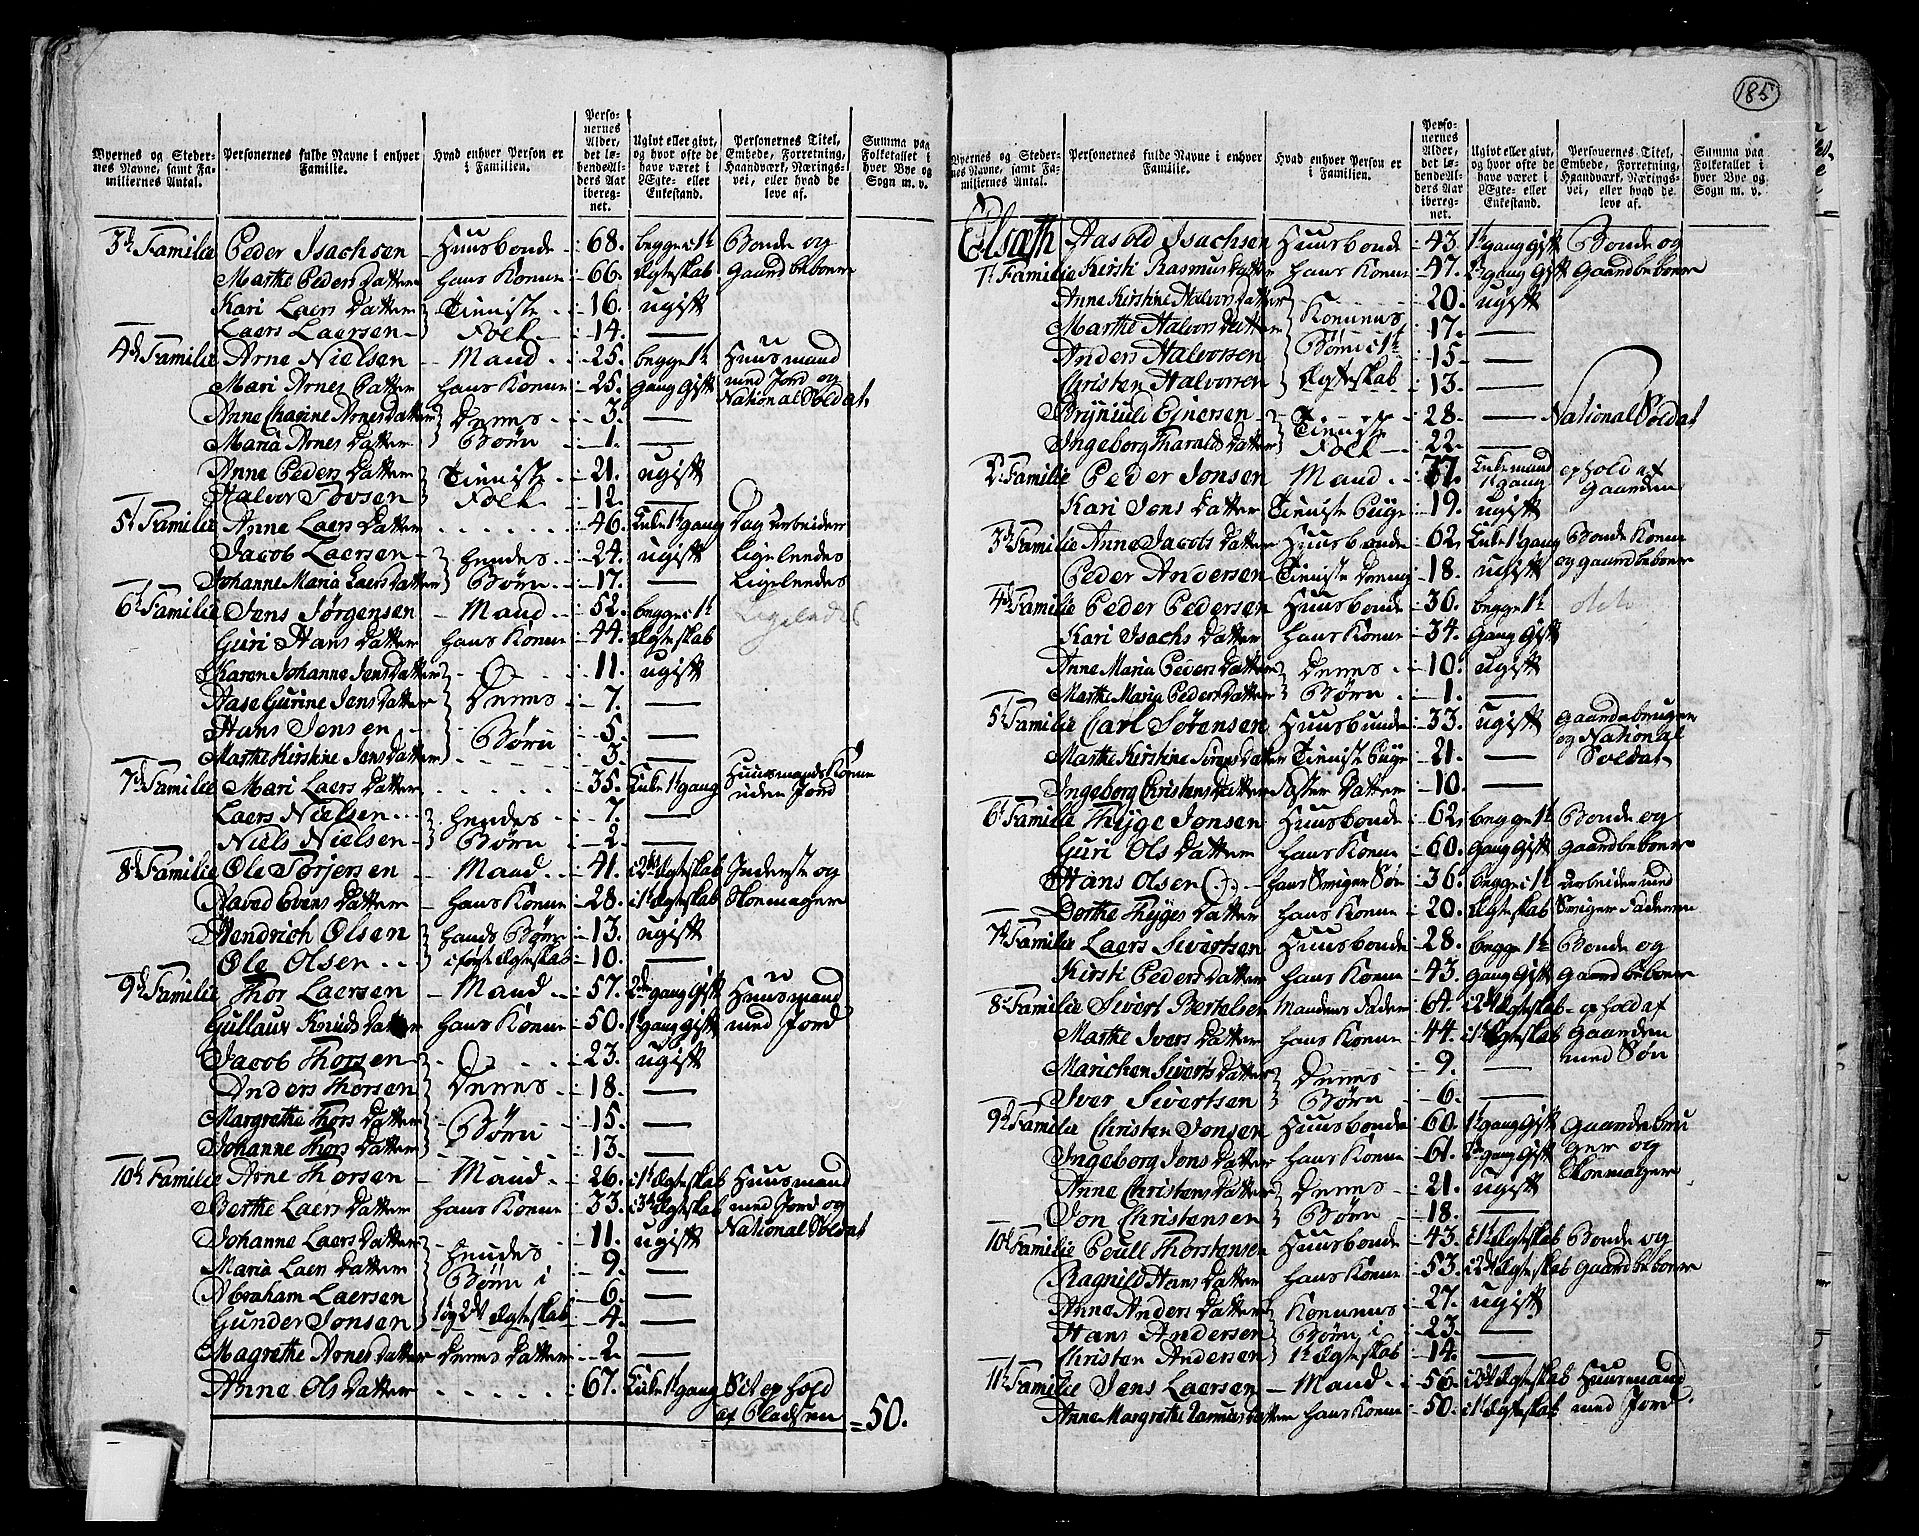 185
Byernes og Stedernes Navne, samt Familiernes Antal.
Personernes fulde Navne i enhver Familie.
Hvad enhver Person er i Familien.
Personernes Alder, det løbendeAlders Aar iberegnet.
Ugivt eller givt, og hvor ofte de have været i Ægte- eller Enkestand.
Personernes Titel, Embede, Forretning, Haandværk, Næringsvei, eller hvad de leve af.
Summa paa Folketallet i hver Bye og Sogn m. v.
3de Familie Peder Isachsen Huusbonde 68. begge i 1te Bonde og
Marthe Peders Datter hans Konne 66. Ægteskab Gaardbeboere
Kari Laers Datter Tieniste 16. ugift
Laers Laersen Folk 14. —
4de Familie Arne Nielsen Mand 25. begge 1te Huusmand
Mari Arnes Datter hans Konne 25. gang Gift med Jord og
Anne Charine Arnes Datter Deres 3. — National Soldat
Maria Arnes Datter Børn 1. —
Anne Peders Datter Tieniste 21. ugift
Halvor Tovsen Folk 12. —
5te Familie Anne Laers Datter 46. Enke 1te gang Dag Arbeider
Jacob Laersen hendes 24. ugift Ligeledes
Johanne Maria Laers Datter Børn 17. — Ligeledes
6te Familie Jens Jørgensen Mand 52. begge i 1te Ligeledes
Guri Hans Datter hans Konne 44. Ægteskab
Karen Johanne Jens Datter 11. ugift
Aase Gurine Jens Datter Deres 7. —
Hans Jensen Børn 5. —
Marthe Kirstine Jens Datter 3. —
7de Familie Mari Laers Datter 35. Enke 1te gang Huusmands Konne
uden Jord
Laers Nielsen hendes 7. —
Niels Nielsen Børn 2. —
8de Familie Ole Torjersen Mand 41. i 2det Ægteskab Inderste og
Aaved Evens Datter hans Konne 28. i 1te Ægteskab Skoemager
Hendrich Olsen hands Børn 13. ugift
Ole Olsen i første Ægteskab 10. —
9de Familie Thor Laersen Mand 57. 2den gang Gift Huusmand
Gullaug Knuds Datter hans Konne 50. 1te gang Gift med Jord
Jacob Thorsen 23. ugift
Anders Thorsen Deres 18. —
Margrethe Thors Datter Børn 15. —
Johanne Thors Datter 13. —
10de Familie Arne Thorsen Mand 26. i 1te Ægteskab Huusmand
Berthe Laers Datter hans Konne 33. i 3die Ægteskab med Jord og
Johanne Laers Datter 11. ugift National Soldat
Maria Laers Datter hendes 9. —
Abraham Laersen Børn i 6. —
Gunder Jonsen 1te og 2det Ægteskab 4. —
Magrethe Arnes Datter Deres Datter 2. —
Anne Ols Datter 67. Enke 1te gang Sit ophold
af Pladsen = 50.
Byernes og Stedernes Navne, samt Familiernes Antal.
Personernes fulde Navne i enhver Familie.
Hvad enhver Person er i Familien.
Personernes Alder, det løbendeAlders Aar iberegnet.
Ugivt eller givt, og hvor ofte de have været i Ægte- eller Enkestand.
Personernes Titel, Embede, Forretning, Haandværk, Næringsvei, eller hvad de leve af.
Summa paa Folketallet i hver Bye og Sogn m. v.
Elsæth Aasold Isachsen Huusbonde 43. 1te gang Gift Bonde og
1te Familie Kirsti Rasmus Datter hans Konne 47. gang Gift Gaardbeboere
Anne Kirstine Halvors Datter 20. ugift
Marthe Halvors Datter Konnens 17. —
Anders Halvorsen Børn i 1te 15. —
Christen Halvorsen Ægteskab 13. —
Bryniuld Einersen Tieniste 28. — National Soldat
Ingeborg Tharalds Datter Folk 22. —
2de Familie Peder Jonsen Mand 77. Enkemand ophold af
1te gang Gaarden
Kari Jons Datter Tieniste Pige 19. ugift
3de Familie Anne Jacobs Datter Huusbonde 62. Enke 1te gang Bonde Konne
Peder Andersen Tieniste Dreng 18. ugift og gaardbeboere
4de Familie Peder Pedersen Huusbonde 36. begge 1te dito
Kari Isachs Datter hans Konne 34. gang Gift
Anne Maria Peders Datter Deres 10. ugift
Marthe Maria Peders Datter Børn 1. —
5te Familie Carl Sørensen Huusbunde 33. ugift Gaardebruger
og National
Marthe Kirstine Sørens Datter Tieniste Pige 21. — Soldat
Ingeborg Christens Datter Foster Datter 10. —
6te Familie Thyge Jonsen Huusbonde 62. begge 1te Bonde og
Guri Ols Datter hans Konne 60. gang Gift Gaardbeboere
Hans Olsen hans Sviger Søn 36. begge i 1te Arbeider med
Dorthe Thyges Datter hans Konne 20. Ægteskab Sviger Faderen
7de Familie Laers Sivertsen Huusbonde 28. begge 1te Bonde og
Kirsti Peders Datter hans Konne 43. gang Gift Gaardbeboere
8de Familie Sivert Bertelsen Mandens Fader 64. i 2det Ægteskab ophold af
Marthe Ivers Datter hans Konne 44. i 1te Ægteskab Gaarden
Marichen Siverts Datter Deres 9. — med Søn
Iver Sivertsen Børn 6. —
9de Familie Christen Jonsen Huusbonde 60. 1te gang Gift Gaardebru
Ingeborg Jons Datter hans Konne 61. gang Gift ger og
Anne Christens Datter Deres 21. ugift Skomager
Jon Christensen Børn 18. —
10de Familie Poull Thorstensen Huusbonde 43. i 1te Ægteskab Bonde og
Ragnild Hans Datter hans Konne 53. i 2det Ægteskab Gaardbeboere
Anne Anders Datter Konnens 27. ugift
Hans Andersen Børn i 23. —
Christen Andersen 1te Ægteskab 14. —
11te Familie Jens Laersen Mand 56. i 2det Ægteskab Huusmand
Anne Margrethe Rasmus Datter hans Konne 50. i 1te Ægteskab med Jord